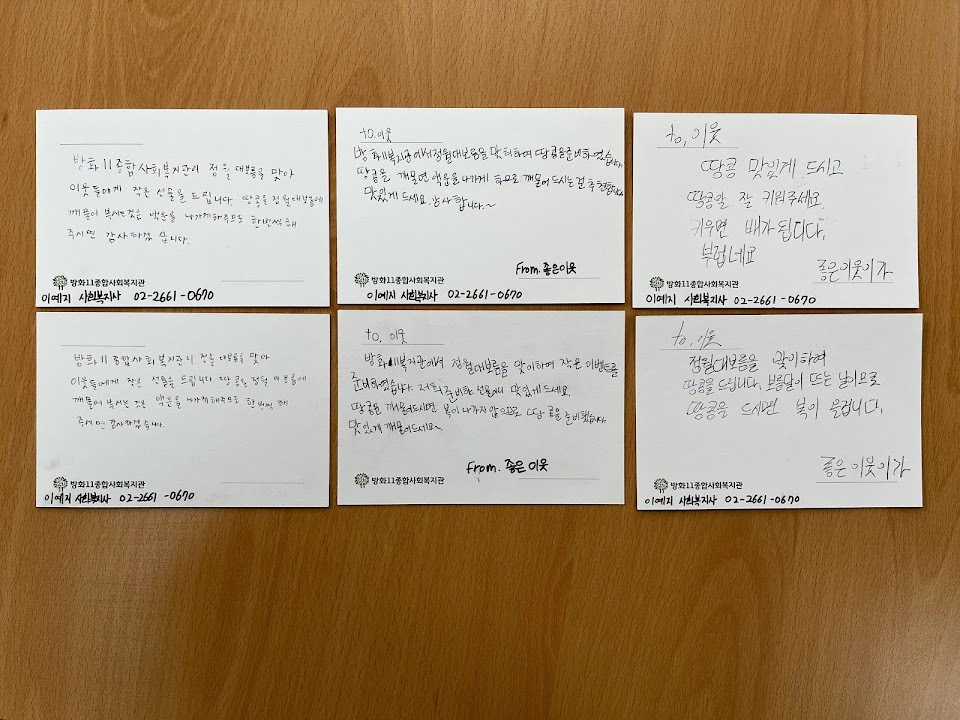 방화11종합사회복지관이 정월 대보름을 맞아
이웃들에게 작은 선물을 드립니다 땅콩을 정월대보름에
깨물어 부시는것은 액운을 나가게해주므로 한번씩 해
주시면 감사하겠 습니다.
방화11종합사회복지관
이예지 사회복지사 02-2661-0670
to. 이웃
방화11복지관에서 정월대보름을 맞이하여 땅콩을준비하였습니다.
땅콩을 깨물면 액운을 나가게 하므로 깨물어 드시는걸 추천합니다
맛있게 드세요. 감사 합니다.~
From. 좋은이웃
방화11종합사회복지관
이예지 사회복지사 02-2661-0670
to, 이웃
땅콩 맛있게 드시고
땅콩알 잘 키워주세요
키우면 배가 됩니다.
부럽네요
좋은이웃이가
방화11종합사회복지관
이예지 사회복지사 02-2661-0670
방화11종합사회복지관이 정월 대보름을 맞아
이웃들에게 작은 선물을 드립니다 땅콩을 정월 대보름에
깨물어 부시는 것은 액운을 나가게해주므로 한번씩 해
주시면 감사하겠습니다.
방화11종합사회복지관
이예지 사회복지사 02-2661-0670
to. 이웃
방화11복지관에서 정월대보름을 맞이하여 작은 이벤트를
준비하였습니다. 저희가 준비한 선물이니 맛있게드세요.
땅콩은 깨물어드시면 복이 나가지 않으므로 땅콩을 준비했습니다.
맛있게 깨물어드세요~
From. 좋은 이웃
방화11종합사회복지관
이예지 사회복지사 02-2661-0670
to, 이웃
정월대보름을 맞이하여
땅콩을 드립니다. 보름달이 뜨는 날이므로
땅콩을 드시면 복이 옵겁니다.
좋은 이웃이가
방화11종합사회복지관
이예지 사회복지사 02-2661-0670